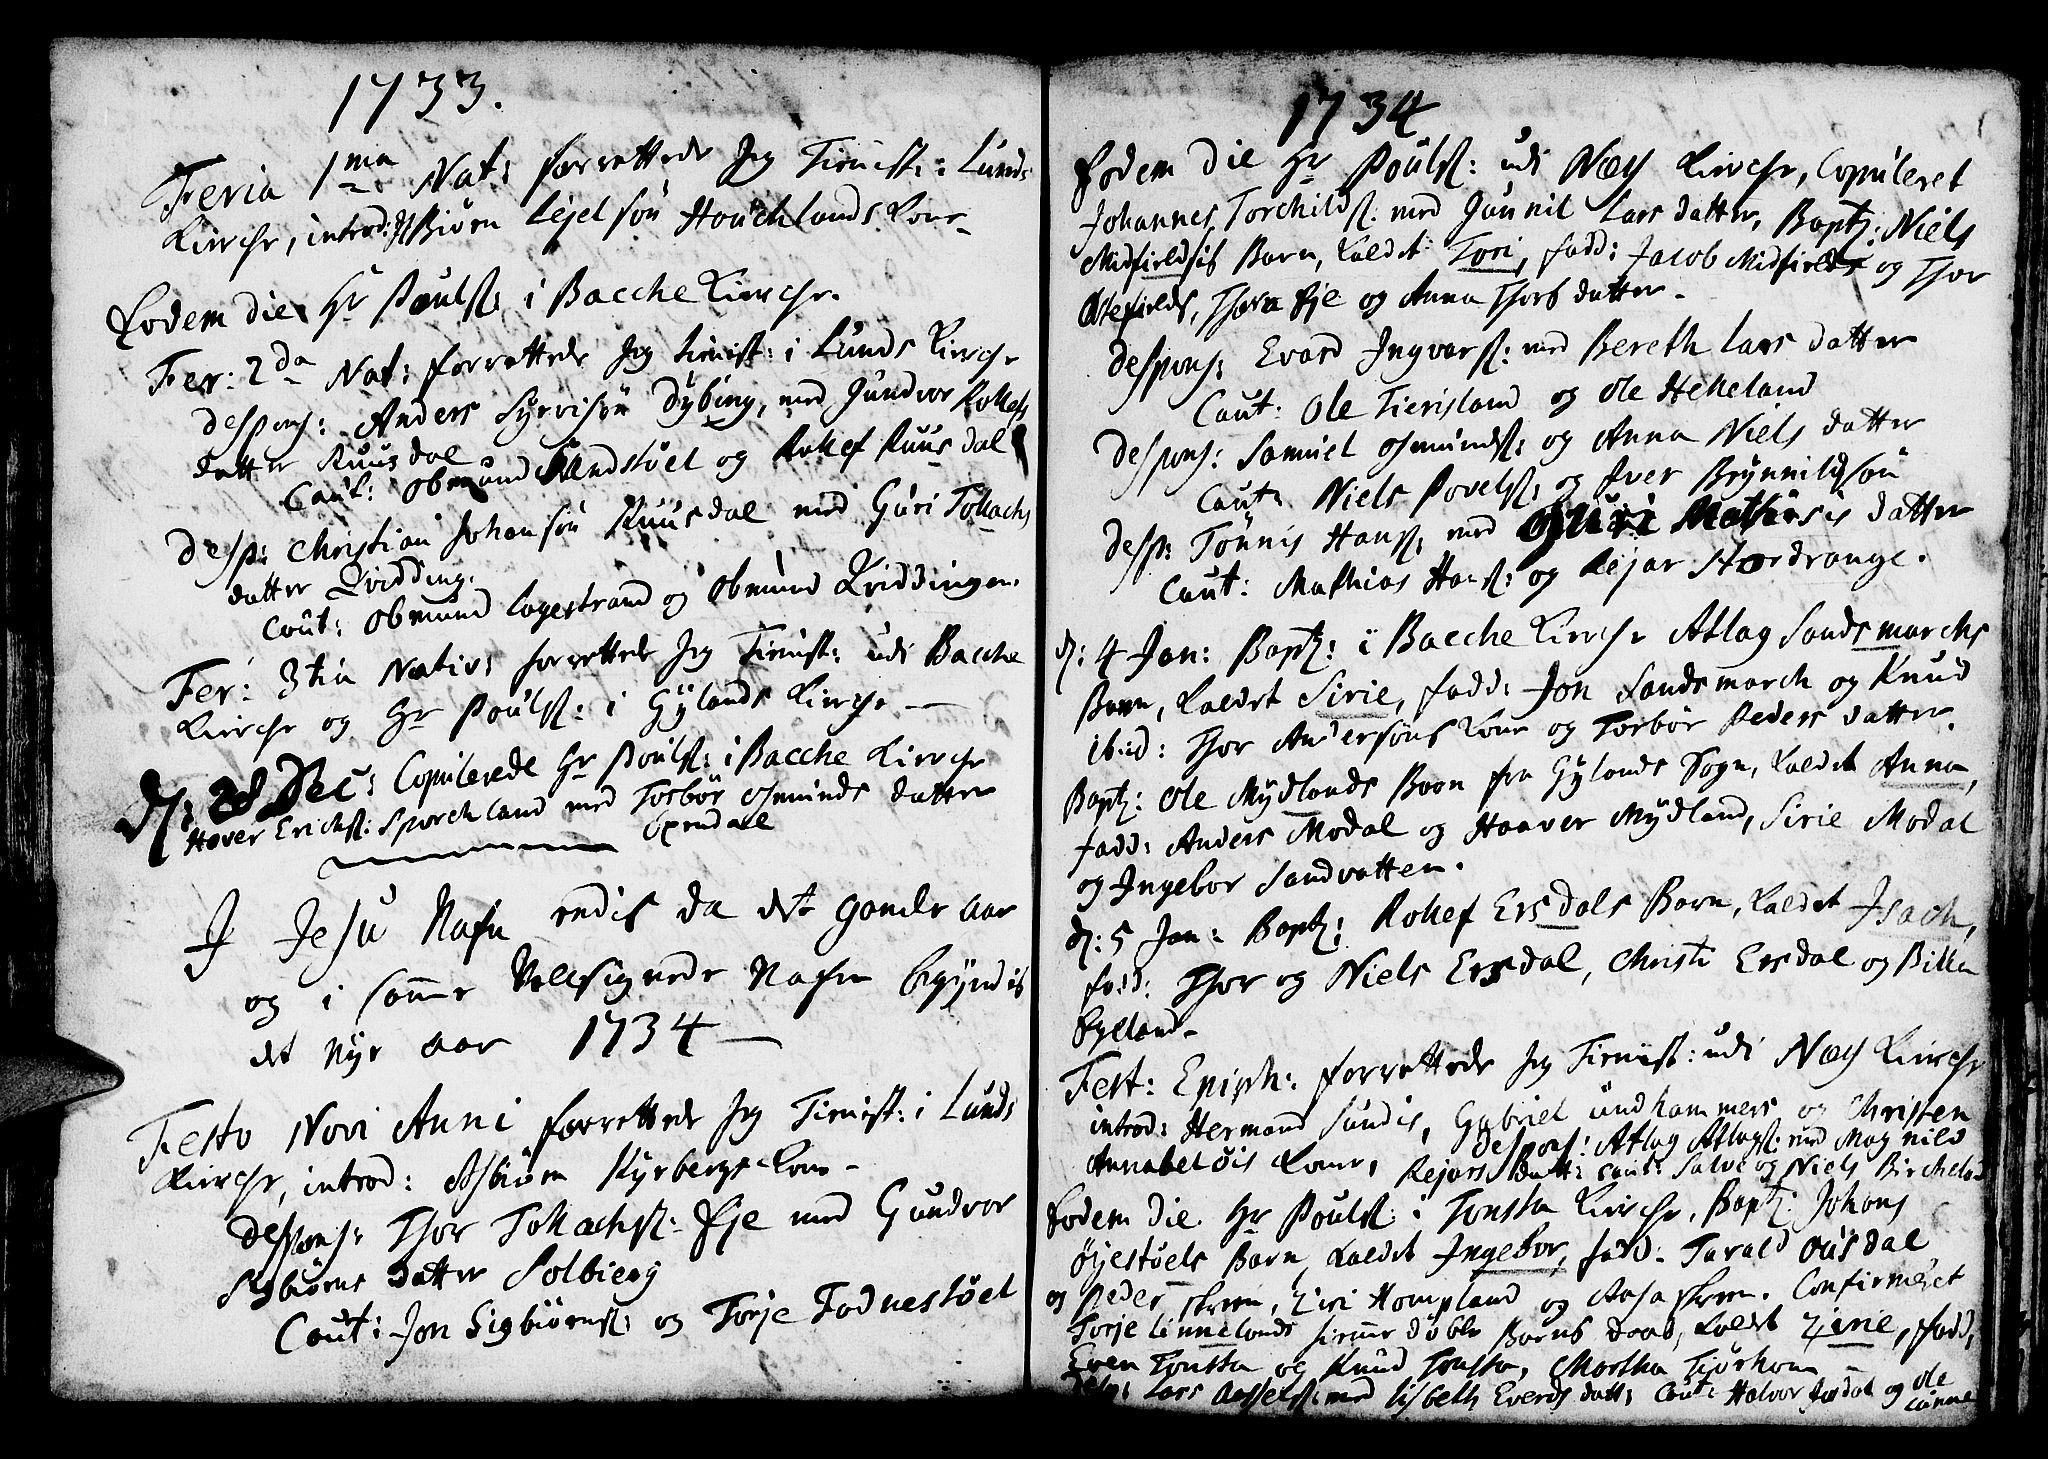 1733.
Feria 1ma Nat: forrettede Jeg Tienist: i Lunds
Kirche, introd: Biørn Lejelsøn Houchlands Kone
Eodem die Hr Poulss: i Bacche Kirche.
Fer: 2da Nat: forrettede Jeg tienist: i Lunds Kirche
Despons: Anders Syvrisøn Dybing, med Gundvor Rollefs
datter Ruusdal
Caut: Obmund Sandstøel og Rollef Ruusdal
Desp: Christian Johansøn Ruusdal med Guri Tollachs
datter Qvidding.
Caut: Obmund Logestrand og Obmund Qviddingen.
Fer: 3tia Nativ: forrettede Jeg Tienist: udi Bacche
Kirche og Hr Poulss: i Gylands Kirche
D: 28 Dec: Copulerede Hr Poulss: i Bacche Kirche
Hover Erichss: Sporchland med Torbør Osmunds datter
Oxendal
I Jesu Nafn endis da det gamle aar
og i samme Vellsignede Nafn begyndis
det nye aar 1734
Festo Novi Anni forrettede Jeg Tienist: i Lunds
Kirche, introd: Asbiørn Kyrbergs Kone
Despons: Thor Tollachss: Eje med Gundvor
Sigbiørns datter Solbierg
Caut: Jon Sigbiørnss: og Torje Fodnestøel
1734
Eodem die Hr Poulss: udi Næss Kirche, Copuleret
Johannes Torchildss: med Gunnil Lars datter, Baptz: Niels
Midfields Barn, kaldet Tori, fadd: Jacob Midfields og Thor
Østefields, Thora Eje og Anna Thors datter.
Despons: Evard Ingvarss: med Bereth Lars datter
Caut: Ole Tierisland og Ole Helleland
Despons: Samuel Osmundss: og Anna Niels datter
Caut: Niels Povelss: og Iver Brynnildsøn
Desp: Tønnis Hanss: med Guri Mathisis datter
Caut: Mathias Hanss: og Rejar Stordrange.
D: 4 Jan: Baptz: i Bacche Kirche Atlag Sandsmarchs
Barn, kaldet Sirie, fadd: Jon Sandsmarch og Knud
ibid: Thor Andersøns Kone og Torbør Peders datter.
Baptz: Ole Mydlands Barn fra Gylands Sogn, kaldet Anna,
fadd: Anders Modal og Haaver Mydland, Sirie Modal
og Ingebor Sandvatten.
D: 5 Jan: Baptz: Rollef Ersdals Barn, kaldet Isach,
fadd: Thor og Niels Ersdal, Christi Ersdal og Billa
Eyeland.
Fest: Epiph: forrettede Jeg Tienist: udi Næss Kirche
introd: Hermand Sundis, Gabriel undhammers og Christen
Annabeløis Koner, Despons: Atlag Atlagss: med Magnild
Rejars Datt: Caut: Salve og Niels Bircheland
Eodem die Hr Poulss: i Tonsta Kirche, Baptz: Johans
Øjestøels Barn, kaldet Ingebor, fadd: Tarald Ousdal
og Peder skreen, Ziri Hompland og Aasa skreen. Confirmeret
Torje Linnelands hiemmedøbte Barns daab, kaldet Zirie, fadd:
Even Tonsta og Knud Tonsta, Martha Tiørhom
Desp: Lars Aasselss: med Lisbeth Everds datt: Caut: Halvor Josdal og Ole